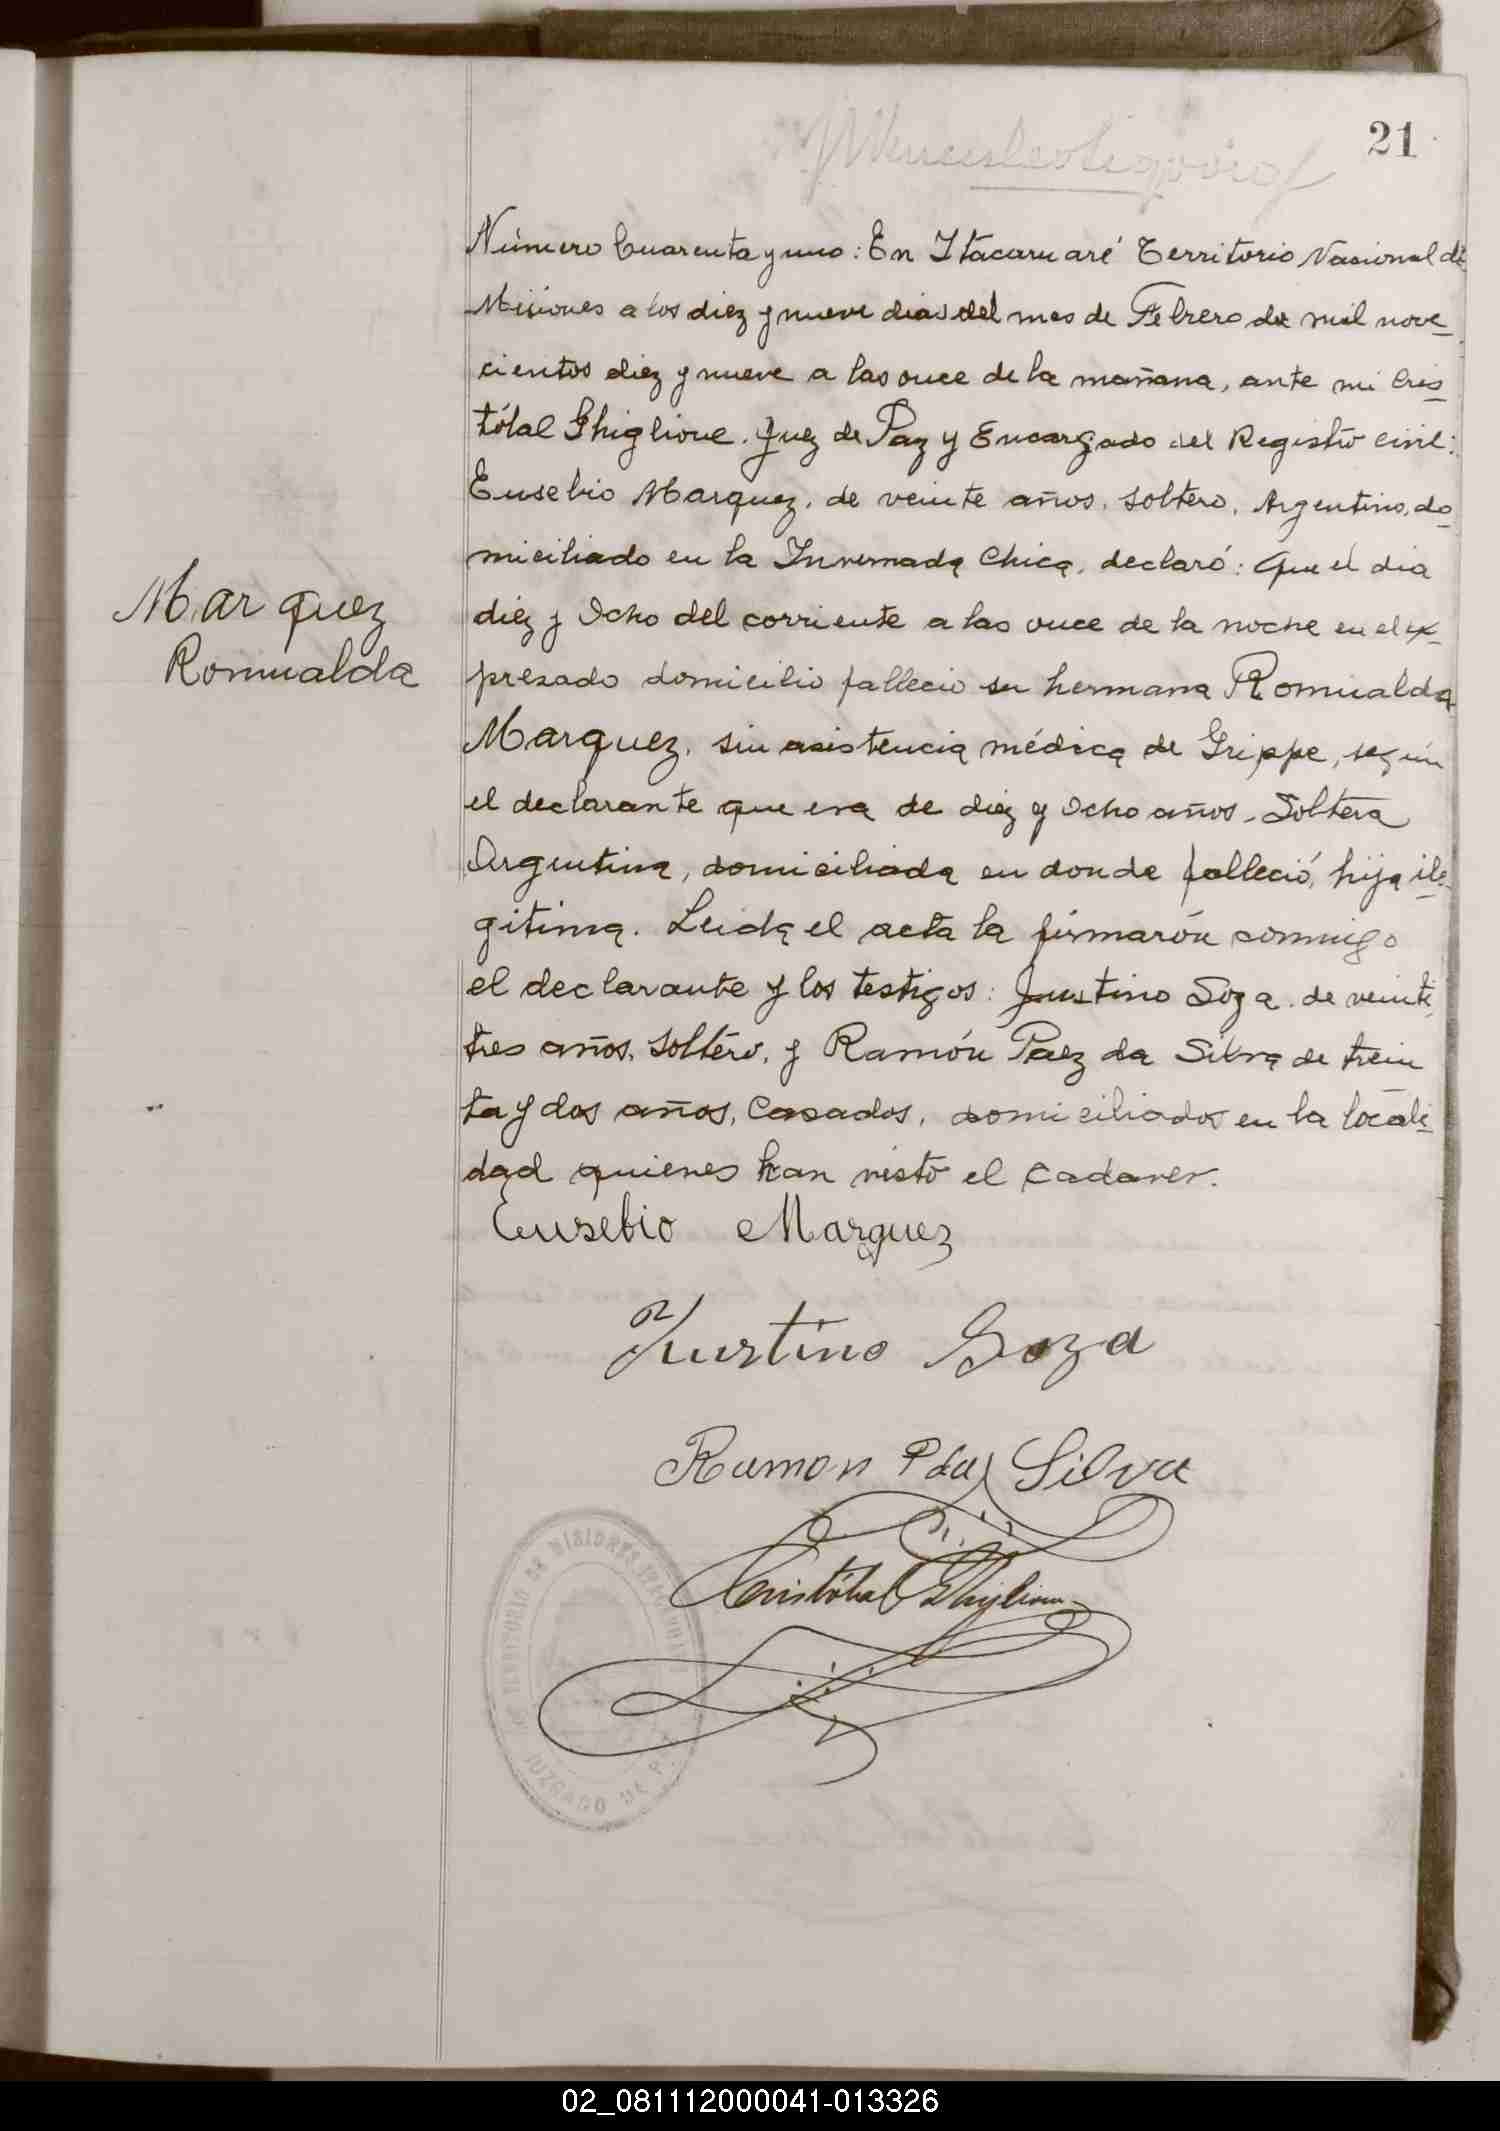 21
Número Cuarenta y uno: En Itacaruaré Territorio Nacional de
Misiones a los diez y nueve dias del mes de Febrero de mil nove
cientos diez y nueve a las once de la mañana, ante mi Cris
tóbal Ghiglione. Juez de Paz y Encargado del Registro civil:
Eusebio Marquez, de veinte años, soltero, Argentino, do
miciliado en la Invernada Chica, declaró: Que el dia
diez y Ocho del corriente a las once de la noche en el ex
presado domicilio fallecio su hermana Romualda
Marquez, sin asistencia médica de Grippe, según
el declarante que era de diez y Ocho años, Soltera
Argentina, domiciliada en donde falleció, hija ile
gitima. Leida el acta la firmarón conmigo
el declarante y los testigos: Justino Soza, de veinte
tres años, soltero, y Ramón Paez da Silva de trein
ta y dos años, Casados, domiciliados en la locali
dad quienes han visto el cadaver.
Marquez
Romualda
Eusebio Marquez
Justino Soza
Ramon P da Silva
Cristóbal Ghiglione
TERRITORIO DE MISIONES
JUZGADO DE P
02_081112000041-013326